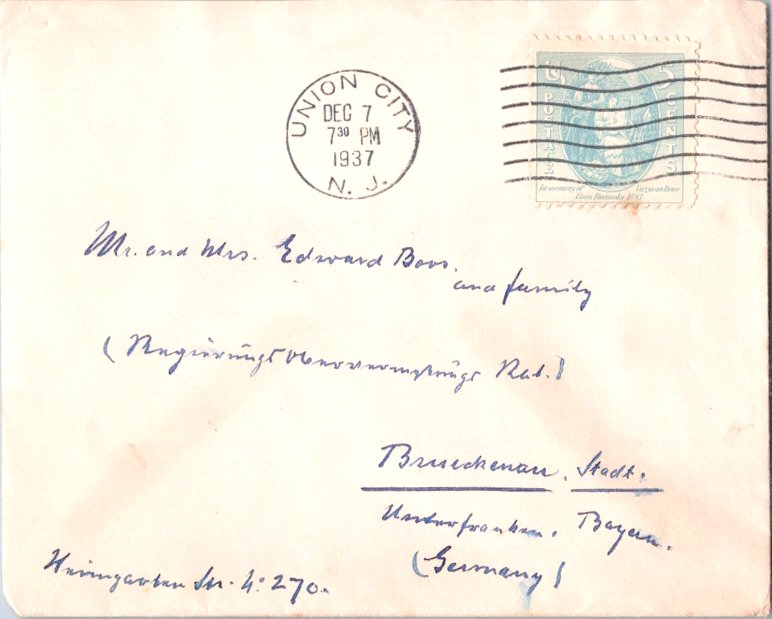 UNION CITY
DEC 7
7³⁰ PM
1937
N. J.
U.S. POSTAGE
5 CENTS
In memory of Virginia Dare
Born Roanoke 1587
Mr. and Mrs. Edward Boos.
and family
(Regierungs Obervermessungs Rat.)
Brueckenau. Stadt.
Unterfranken. Bayern.
(Germany)
Heimgarten Str. No. 270.